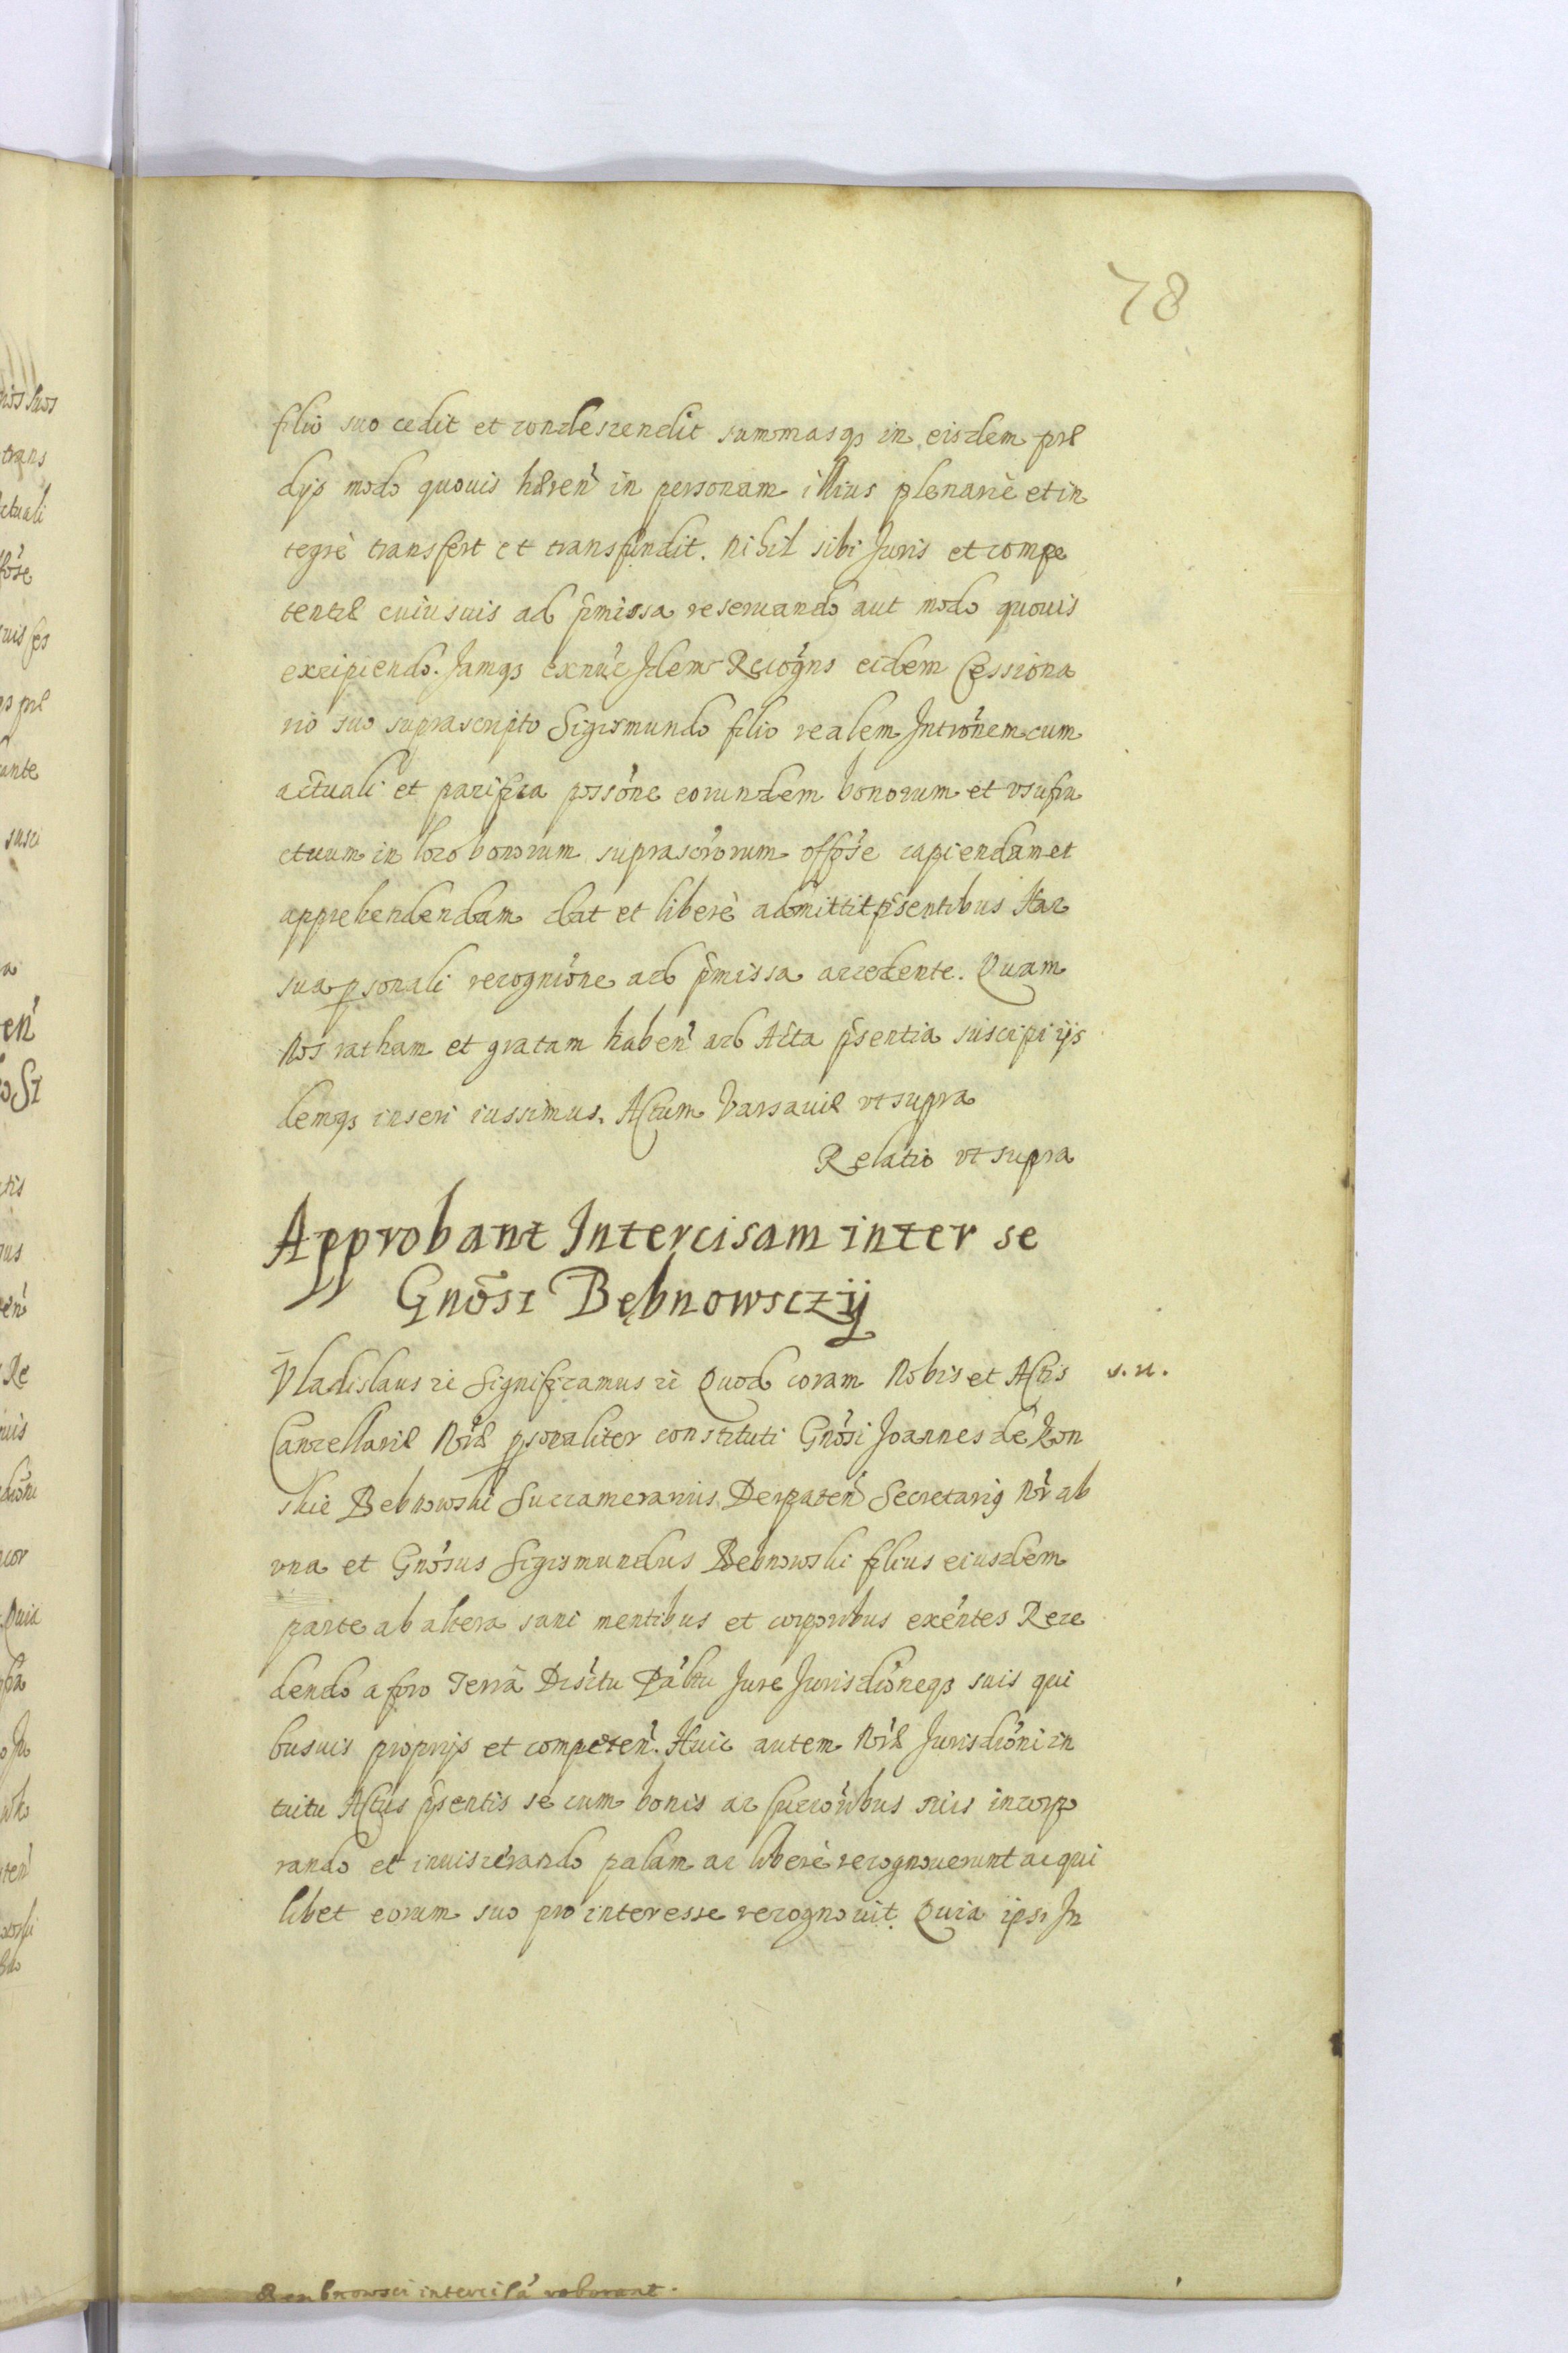 78
filio suo cedit et condescendit summasq3 in eisdem præ
dijs modo quouis hæren̉ in personam illius plenariè et in
tegrè transfert et transfundit. nihil sibi Juris et compe
tentiæ cuiusuis ad p̃missa reseruando aut modo quouis
excipiendo. Jamq3 exnũc Idem Recogñs eidem Cessiona
rio suo suprascripto Sigismundo filio realem Intrõnem cum
actuali et pacifica possõne eorundem bonorum et vsufru
ctuum in loco bonorum suprascrõrum offõse capiendam et
apprehendendam dat et liberè admittit p̃sentibus Hac
sua psonali recogniõne ad p̃missa accedente. Quam
Nos ratham et gratam haben̉ ad Acta p̃sentia suscipi ijs
demq3 inseri iussimus. Actum Varsauiæ vt supra
Relatio vt supra
Approbant Intercisam inter se
Gnõsi Bębnowsczÿ
Vladislaus ic̃ Significamus ic̃ Quod coram Nobis et Actis
s. u.
Cancellariæ Nr̃æ psonaliter constituti Gnõsi Joannes de Kon
skie Bebnowski Succamerarius Derpaten̉ Secretarig Nr̃ ab
vna et Gnõsus Sigismundus Bebnowski filius eiusdem
parte ab altera sani mentibus et corporibus exẽntes Rece
dendo a foro Terrã Disc̃tu Pãltu Jure Jurisdiõneq3 suis qui
busuis proprijs et competen̉. Huic autem Nr̃æ Jurisdiõni in
tuitu Actus p̃sentis se cum bonis ac succõribus suis incorp
rando et inuiscerando palam ac liberè recognouerunt ac qui
libet eorum suo pro interesse recognouit. Quia ipsi In
Bembnowsci intercisã roborant.